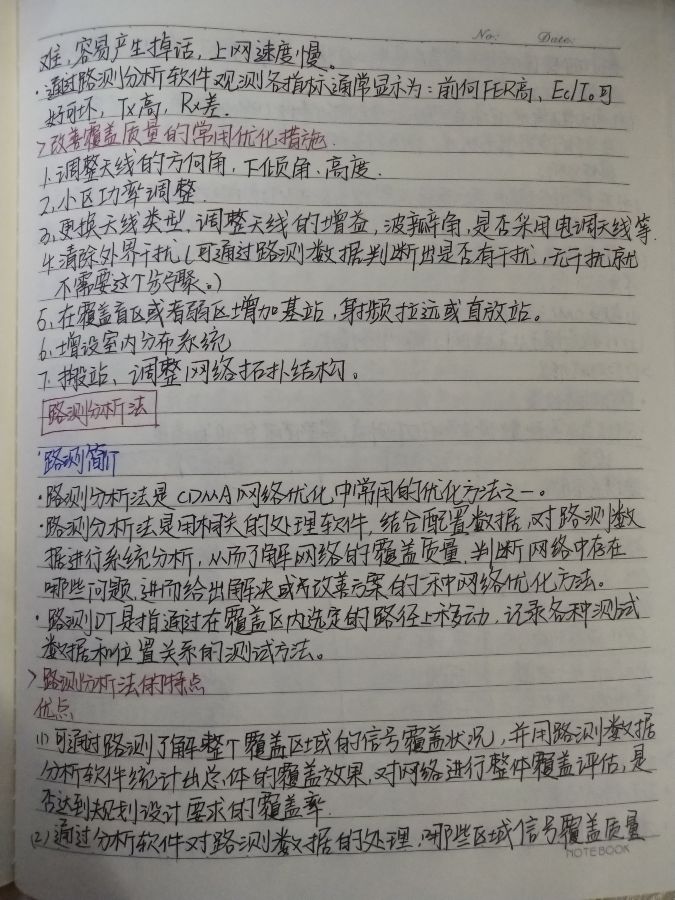 No: Date:
难，容易产生掉话，上网速度慢。
·通过路测分析软件观测各指标通常显示为：前向FER高、Ec/Io可
好可坏，Tx高，Rx差.
>改善覆盖质量的常用优化措施.
1.调整天线的方向角，下倾角、高度.
2.小区功率调整.
3.更换天线类型、调整天线的增益，波瓣角，是否采用电调天线等.
4.清除外界干扰(可通过路测数据判断出是否有干扰，无干扰就
不需要这个步骤。)
5.在覆盖盲区或者弱区增加基站，射频拉远或直放站。
6.增设室内分布系统
7.搬站、调整网络拓扑结构。
路测分析法
·路测简介
·路测分析法是CDMA网络优化中常用的优化方法之一。
·路测分析法是用相关的处理软件，结合配置数据，对路测数
据进行系统分析，从而了解网络的覆盖质量，判断网络中存在
哪些问题，进而给出解决或者改善方案的一种网络优化方法。
·路测DT是指通过在覆盖区内选定的路径上移动，记录各种测试
数据和位置关系的测试方法。
>路测分析法的特点
优点
(1)可通过路测了解整个覆盖区域的信号覆盖状况，并用路测数据
分析软件统计出总体的覆盖效果，对网络进行整体覆盖评估，是
否达到规划设计要求的覆盖率.
(2)通过分析软件对路测数据的处理，哪些区域信号覆盖质量
NOTEBOOK